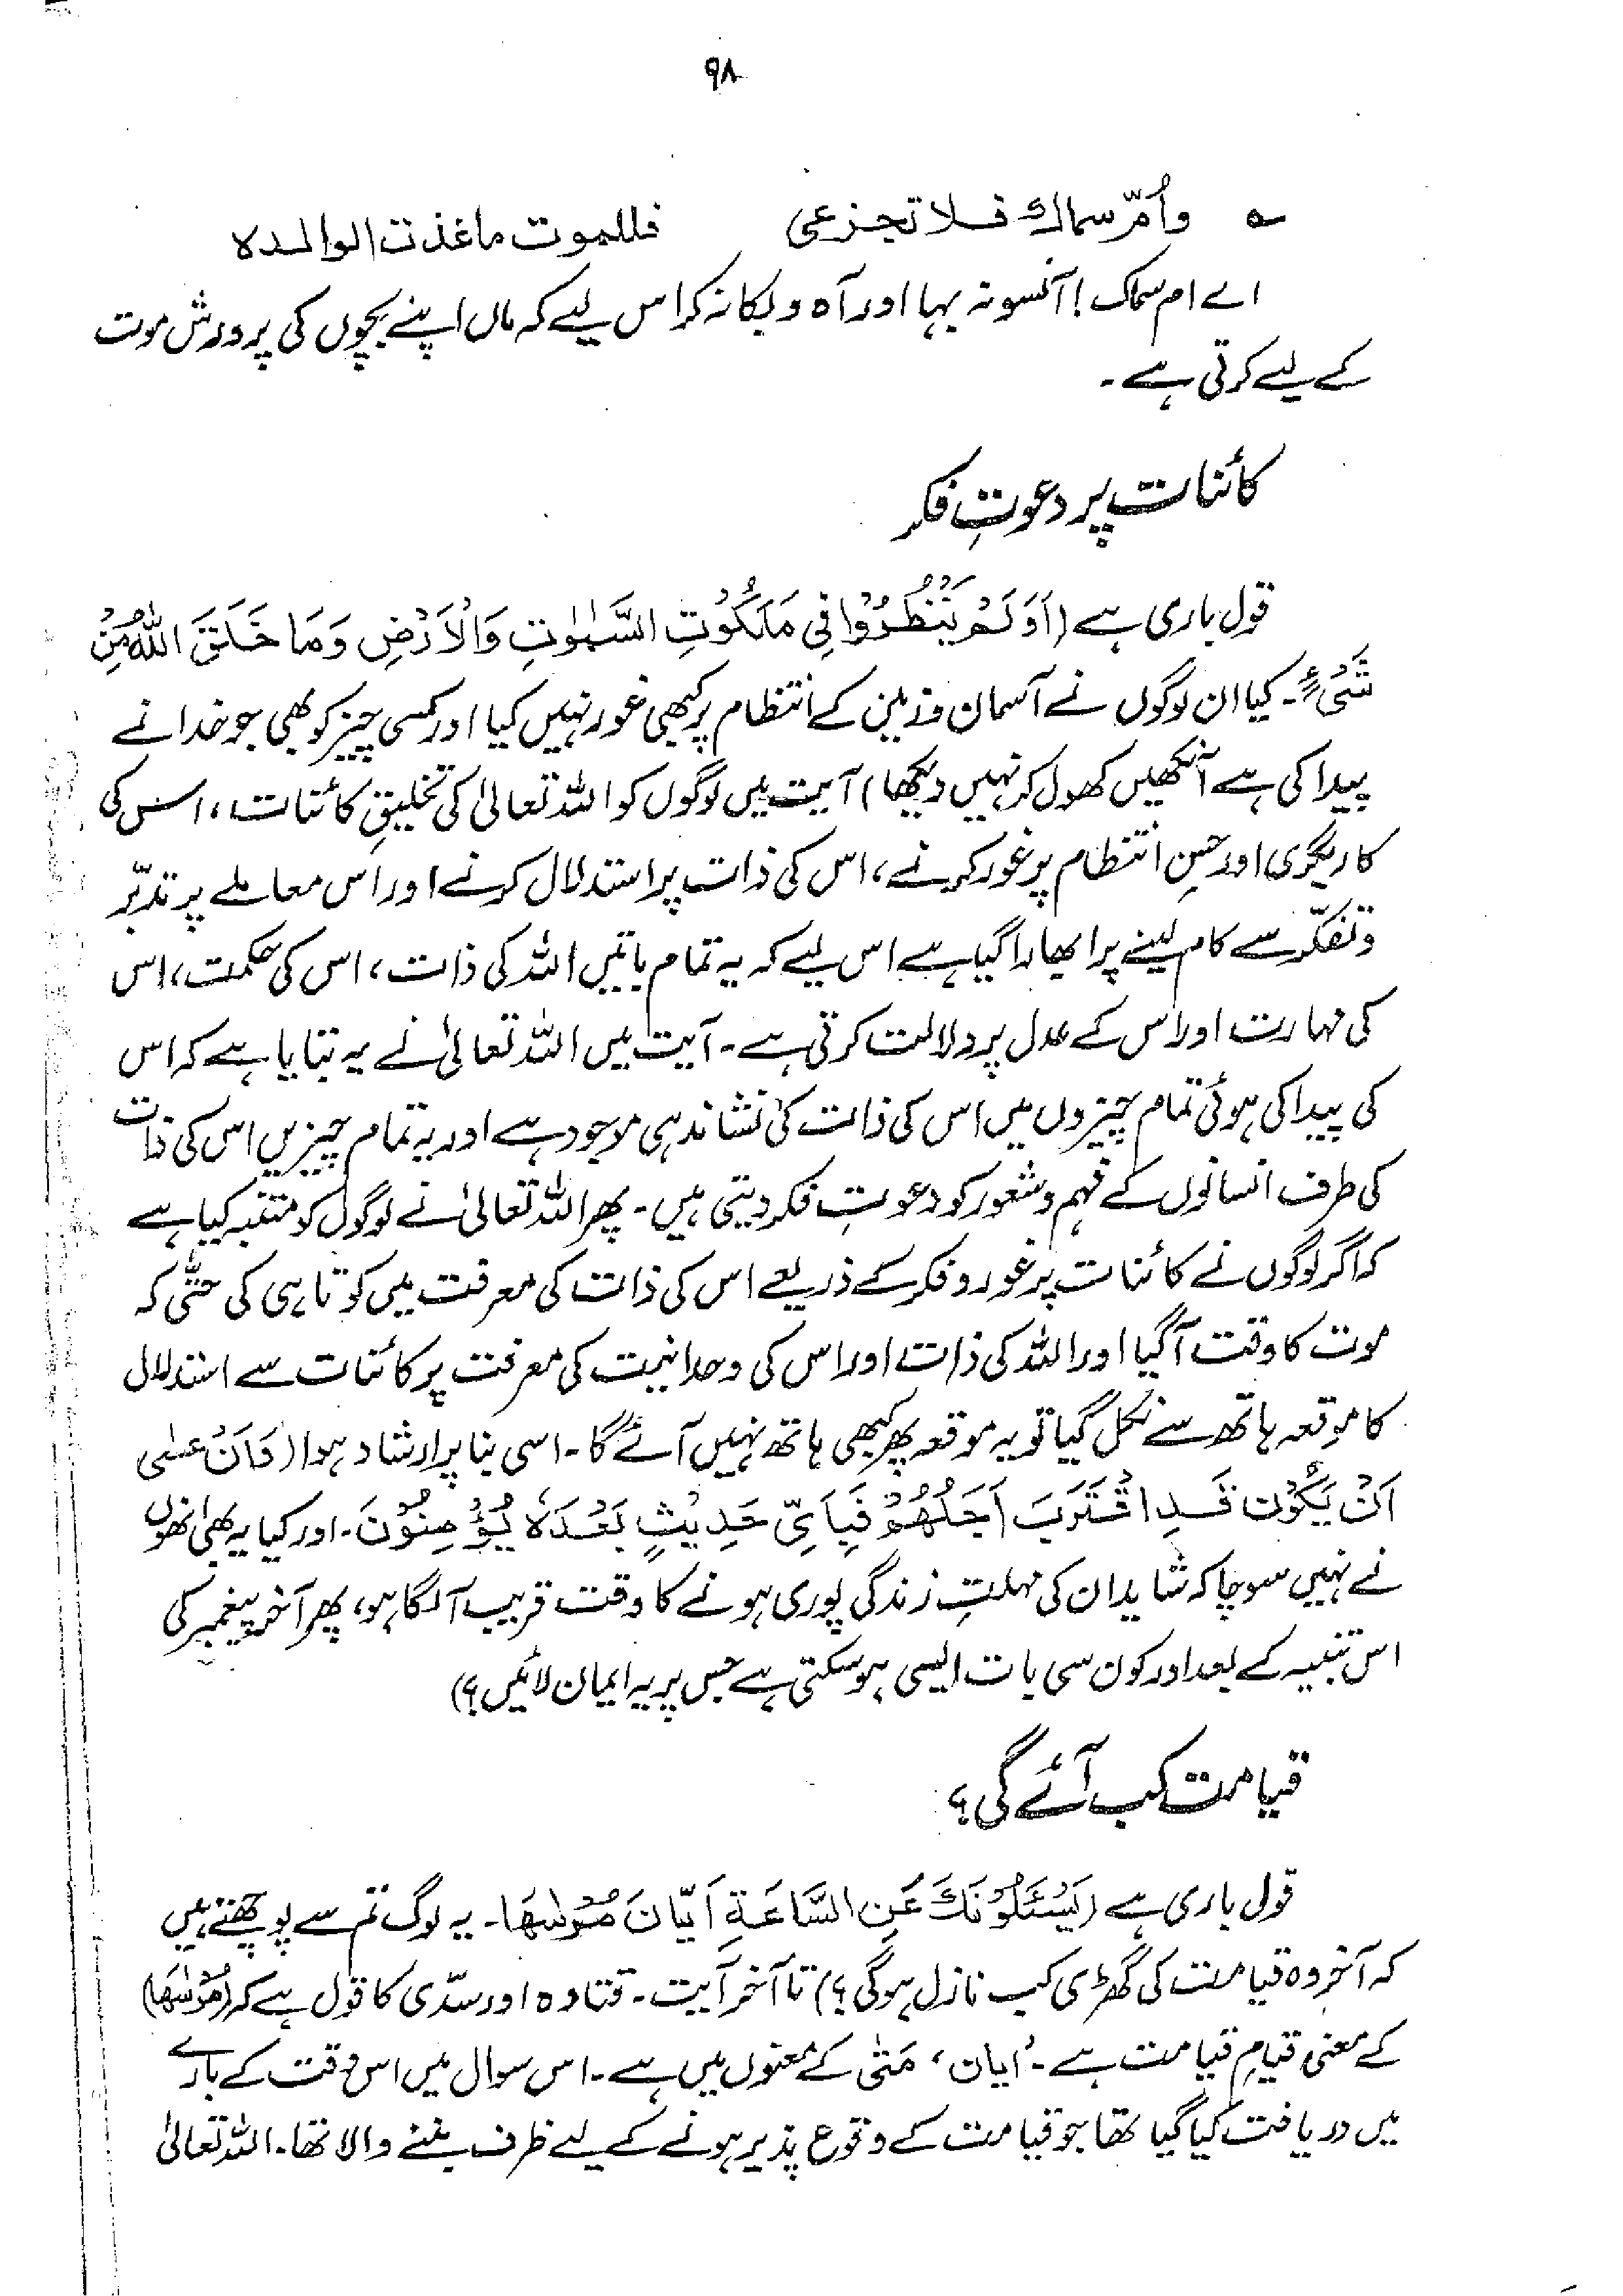 ۹۸
؎ وأمّ سماك فلا تجزعي فللموت ما غذت الوالده
اے ام سماک! آنسو نہ بہا اور آہ و بکا نہ کر اس لیے کہ ماں اپنے بچوں کی پرورش موت
کے لیے کرتی ہے۔
کائنات پر دعوتِ فکر
قول باری ہے (اَوَلَمْ یَنْظُرُوْا فِیْ مَلَکُوْتِ السَّمٰوٰتِ وَالْاَرْضِ وَمَا خَلَقَ اللّٰہُ مِنْ
شَیْءٍ۔ کیا ان لوگوں نے آسمان و زمین کے انتظام پر کبھی غور نہیں کیا اور کسی چیز کو بھی جو خدا نے
پیدا کی ہے آنکھیں کھول کر نہیں دیکھا) آیت میں لوگوں کو اللہ تعالیٰ کی تخلیقِ کائنات، اس کی
کاریگری اور حسنِ انتظام پر غور کرنے، اس کی ذات پر استدلال کرنے اور اس معاملے پر تدبّر
و تفکّر سے کام لینے پر ابھارا گیا ہے اس لیے کہ یہ تمام باتیں اللہ کی ذات، اس کی حکمت، اس
کی مہارت اور اس کے عدل پر دلالت کرتی ہے۔ آیت میں اللہ تعالیٰ نے یہ بتایا ہے کہ اس
کی پیدا کی ہوئی تمام چیزوں میں اس کی ذات کی نشاندہی موجود ہے اور یہ تمام چیزیں اس کی ذات
کی طرف انسانوں کے فہم و شعور کو دعوتِ فکر دیتی ہیں۔ پھر اللہ تعالیٰ نے لوگوں کو متنبہ کیا ہے
کہ اگر لوگوں نے کائنات پر غور و فکر کے ذریعے اس کی ذات کی معرفت میں کوتاہی کی حتّٰی کہ
موت کا وقت آ گیا اور اللہ کی ذات اور اس کی وحدانیت کی معرفت پر کائنات سے استدلال
کا موقعہ ہاتھ سے نکل گیا تو یہ موقعہ پھر کبھی ہاتھ نہیں آئے گا۔ اسی بنا پر ارشاد ہوا (وَاَنْ عَسٰی
اَنْ یَّکُوْنَ قَدِ اقْتَرَبَ اَجَلُھُمْ فَبِاَیِّ حَدِیْثٍ بَعْدَہٗ یُؤْمِنُوْنَ۔ اور کیا یہ بھی انھوں
نے نہیں سوچا کہ شاید ان کی مہلتِ زندگی پوری ہونے کا وقت قریب آ لگا ہو، پھر آخر پیغمبر کی
اس تنبیہ کے بعد اور کون سی بات ایسی ہو سکتی ہے جس پر یہ ایمان لائیں؟)
قیامت کب آئے گی؟
قول باری ہے (یَسْئَلُوْنَکَ عَنِ السَّاعَةِ اَیَّانَ مُرْسٰھَا۔ یہ لوگ تم سے پوچھتے ہیں
کہ آخر وہ قیامت کی گھڑی کب نازل ہوگی؟) تا آخر آیت۔ قتادہ اور سدّی کا قول ہے کہ (مُرْسٰھَا)
کے معنی قیامِ قیامت ہے۔ 'ایان' مَتٰی کے معنوں میں ہے۔ اس سوال میں اس وقت کے بارے
میں دریافت کیا گیا تھا جو قیامت کے وقوع پذیر ہونے کے لیے ظرف بننے والا تھا۔ اللہ تعالیٰ